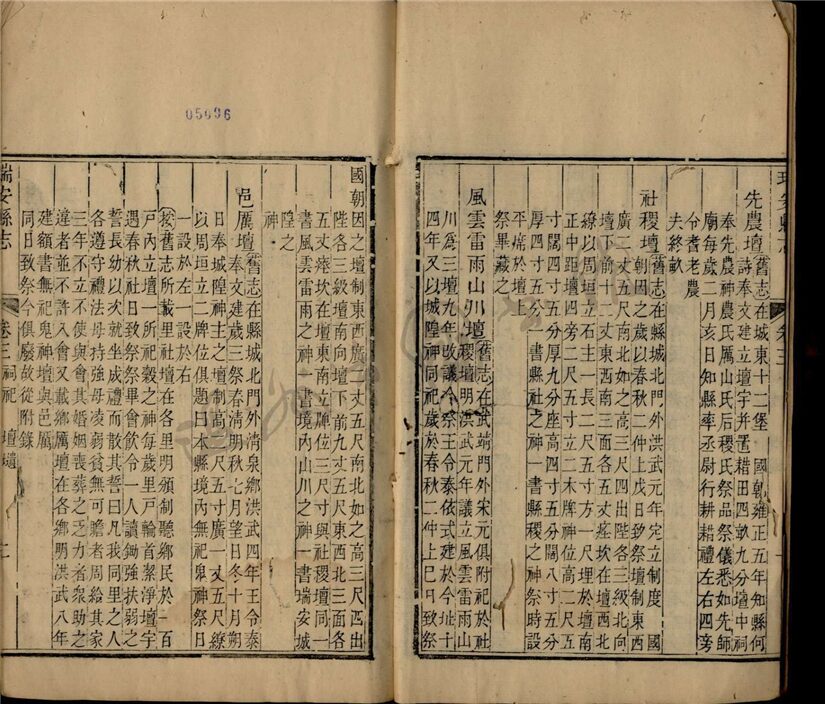 瑞安縣志
卷三
先農壇舊志在城東十二堡 國朝雍正五年知縣何
詩奉文建立壇宇并置耤田四畝九分壇中祠
奉先農神農氏厲山氏后稷氏祭品祭儀悉如先師
廟每歲二月亥日知縣率丞尉行耕耤禮左右四旁
令耆老農
夫終畝
社稷壇舊志在縣城北門外洪武元年定立制度 國
朝因之歲以春秋二仲上戊日致祭壇制東西
廣二丈五尺南北如之高三尺四出陛各三級北向
壇下前十二丈東西南三面各五丈瘞坎在壇西北
繚以周垣立石主一長二尺五寸方一尺埋於壇南
正中距壇四旁二尺五寸立二木牌神位高二尺五
寸闊四寸五分厚九分座高四寸五分闊八寸五分
厚四寸五分一書縣社之神一書縣稷之神祭時設
平席於壇上
祭畢藏之
風雲雷雨山川壇舊志在武靖門外宋元俱附祀於社
稷壇明洪武元年議立風雲雷雨山
川為三壇九年改議合祭王令泰依式建於今址十
四年又以城隍神同祀歲於春秋二仲上巳日致祭
05696
國朝因之壇制東西廣二丈五尺南北如之高三尺四出
陛各三級壇南向壇下前九丈五尺東西北三面各
五丈瘞坎在壇東南立牌位三尺寸與社稷壇同一
書風雲雷雨之神一書境內山川之神一書瑞安城
隍之
神
邑厲壇舊志在縣城北門外清泉鄉洪武四年王令泰
奉文建歲三祭春清明秋七月望日冬十月朔
日奉城隍神主之壇制高尺五寸廣一丈五尺繚
以周垣立二牌位俱題曰本縣境內無祀鬼神祭日
一設於左一設於右
按舊志所載里社壇在各里明頒制聽鄉民於一百
戶內立壇一所祀穀之神每歲里戶輪首潔淨壇宇
遇春秋社日致祭祭畢會飲令一人讀鋤強扶弱之
誓長幼以次就坐成禮而散其誓曰凡我同里之人
各遵守禮法毋持強毋凌弱貧無可贍者周給其家
三年不立不使與會其婚姻喪葬之乏力者衆助之
違者並不許入會又載鄉厲壇在各鄉明洪武八年
建額書無祀鬼神壇與邑厲
同日致祭今俱廢故從附錄
瑞安縣志
卷三祠祀 壇壝